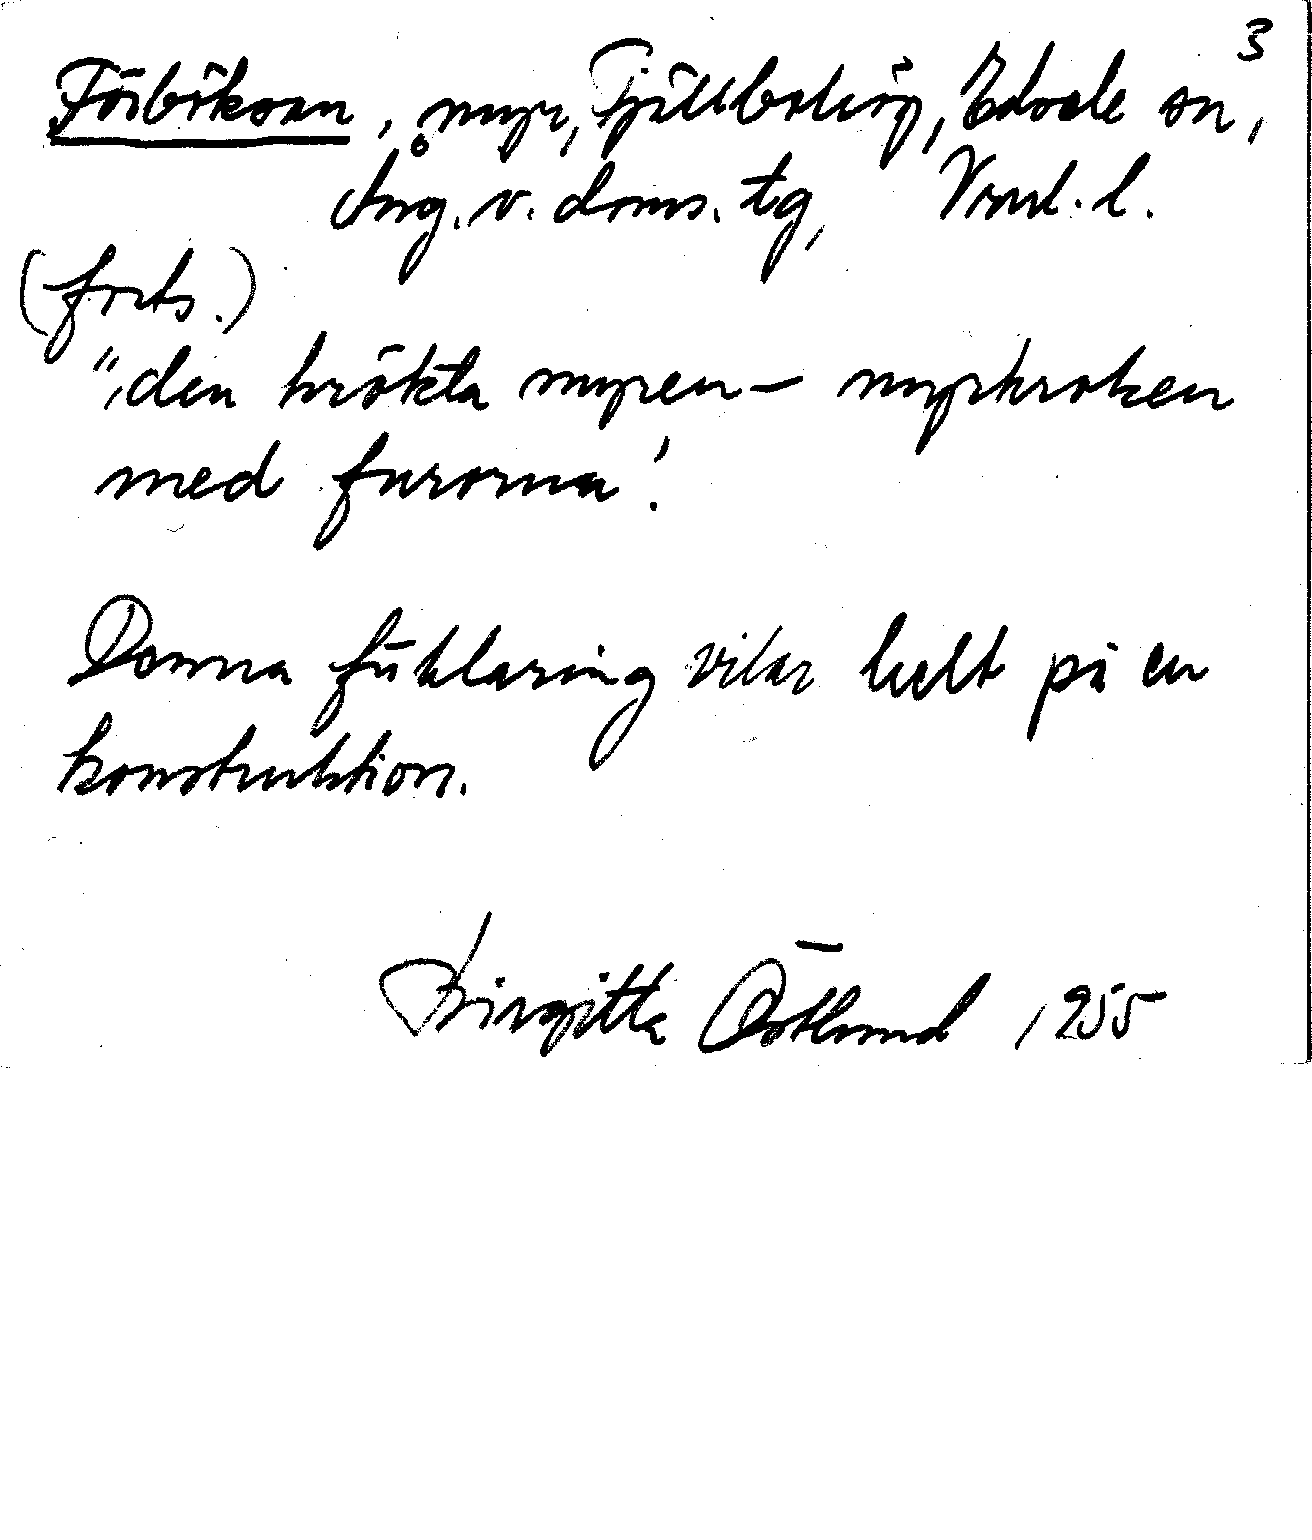 3
Förbikoan, myr, Fjällboberg, Edsele sn,
Ång. v. doms. tg, Vnl. l.
(forts.)
", den krökta myren – myrkroken
med furorna'.
Denna förklaring vilar helt på en
konstruktion.
Birgitta Östlund 1955